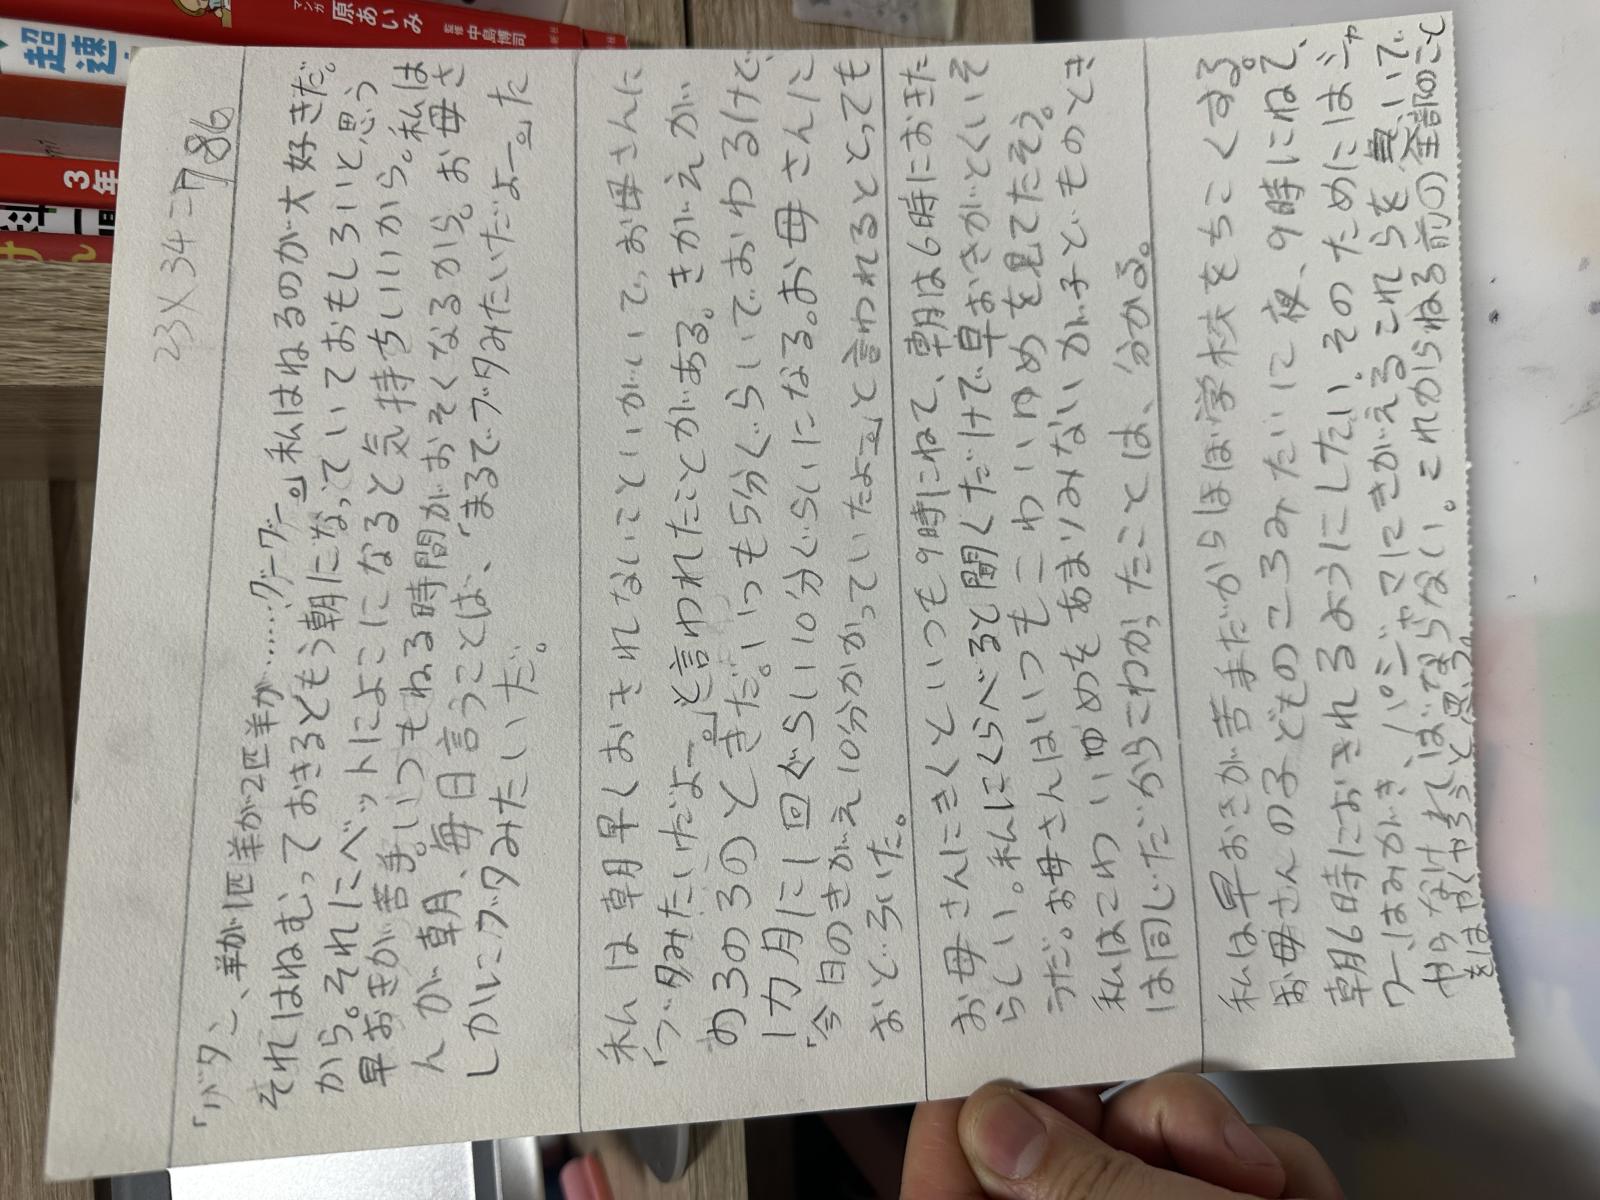 超速
マンガ 原あいみ
監修 中島博司
3年
23×34=786
「バタン、羊が1匹羊が2匹羊が……グーグー。」私はねるのが大好きだ。
それはねむっておきるともう朝になっていておもしろいと思う
から。それにベットによこになると気持ちいいから。私は
早おきが苦手。いつもねる時間がおそくなるから。お母さ
んが朝、毎日言うことは、「まるでブタみたいだよー。」た
しかにブタみたいだ。
私は朝早くおきれないこといがいで、お母さんに
「ブタみたいだよー。」と言われたことがある。きがえか
めの3のときだ。いつも5分ぐらいでおわるけど、
1カ月に1回ぐらい10分ぐらいになる。お母さんに
「今日のきがえ10分かかっていたよ。」と言われるととっても
おどろいた。
お母さんにきくといつも9時にねて、朝は6時におきた
らしい。私にくらべると聞くだけで早おきがとくいそ
うだ。お母さんはいつもこわいゆめを見てたそう。
私はこわいゆめをあまりみないが子どものとき
は同じだからこわかったことは、分かる。
私は早おきが苦手だからほぼ学校をちこくする。
お母さんの子どものころみたいに夜、9時にねて、
朝6時におきれるようにしたい。そのためにはシャ
ワー、はみがき、パジャマにきがえるこれらを急いで
やらなければならない。これからねる前の全部のこと
をはやくやろうと思う。